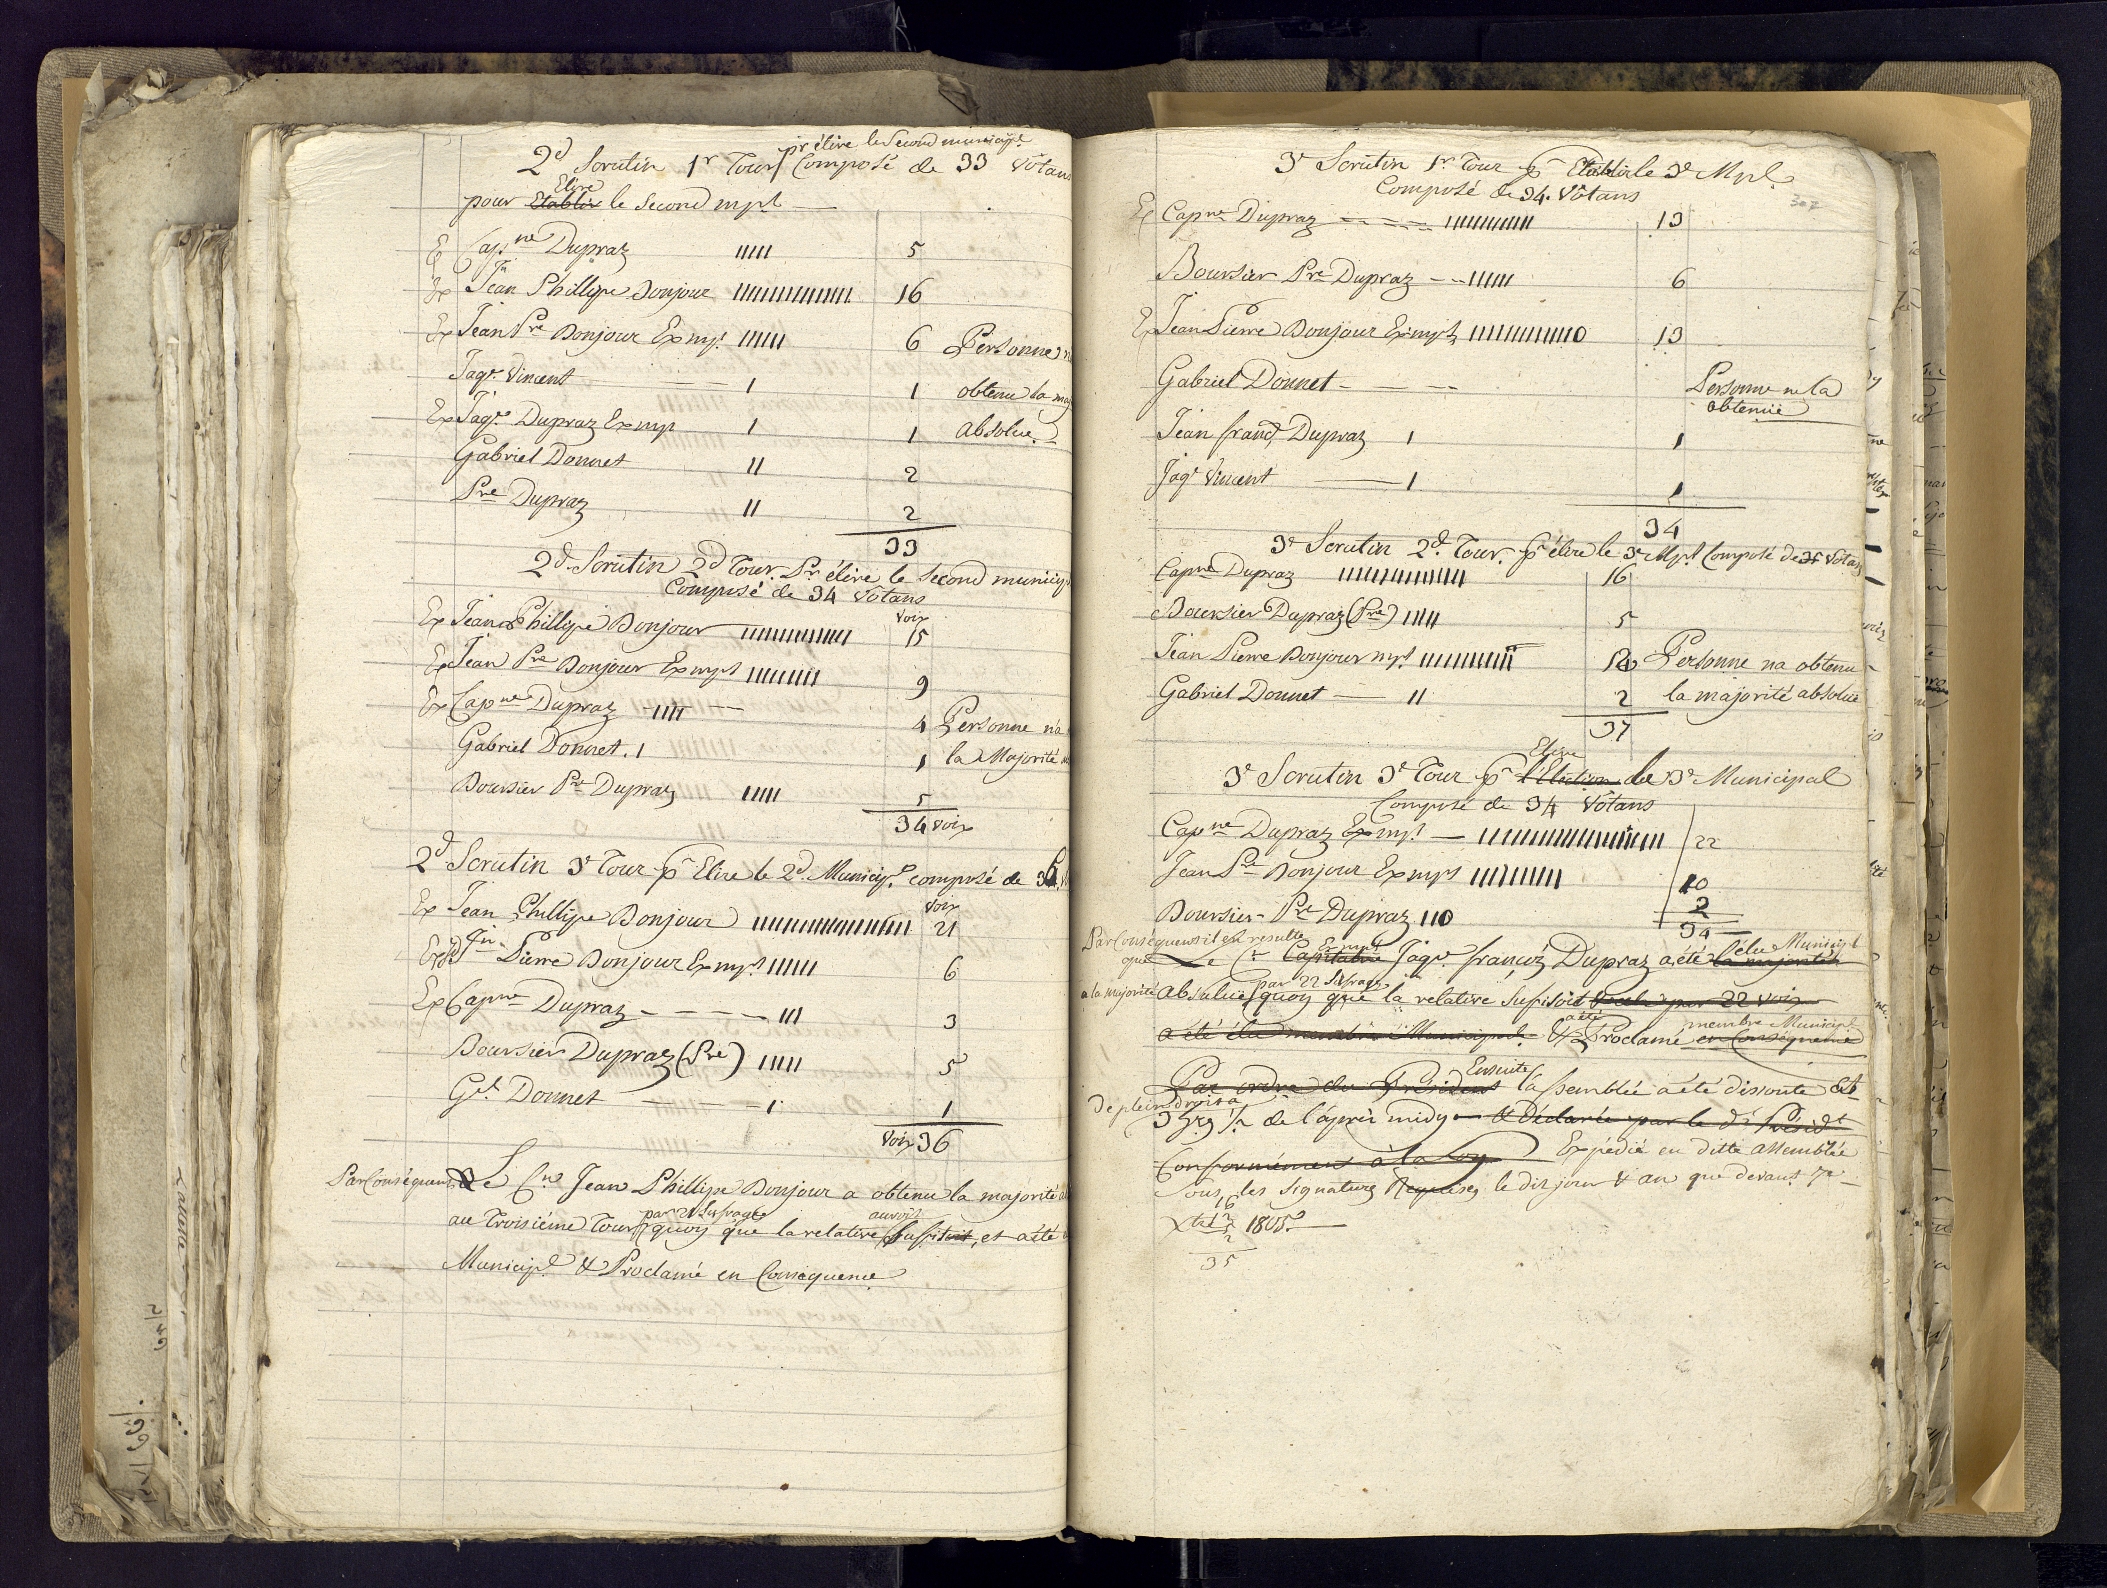 pr élire le Second municipl
2d Scrutin 1r Tour Composé de 33 Votans
Elire
pour Etablir le Second mpl
Ex Capne Dupraz 5
Ex Jean Phillipe Bonjour 16
Ex Jean Pre Bonjour Exmpl 6 Personne n
Jaqs Vincent 1 1 obtenu la maj
Ex Jaqs Dupraz Exmp 1 1 absolue
Gabriel Donnet 11 2
Pre Dupraz 11 2
33
2d Scrutin 2d Tour Pr élire le Second municip
Composé de 34 Votans
Voix
Ex Jean Phillipe Bonjour 15
Ex Jean Pre Bonjour Exmpl 9
Ex Capne Dupraz 4 Personne n'a
Gabriel Donnet 1 1 la Majorité
Boursier Pre Dupraz 5
34 voix
2d Scrutin 3e Tour pr Elire le 2d Municipl composé de
Voix
Ex Jean Phillipe Bonjour 21
Jn Pierre Bonjour Exmpl 6
Ex Capne Dupraz 3
Boursier Dupraz (Pre) 5
Gel Donnet 1 1
Voix 36
Par Conséquent Le Cn Jean Phillipe Bonjour a obtenu la majorité
par 21 Sufrages auroit
au Troisiéme Tour quoy que la relative Sufisoit, et a été
Municipl & Proclamé en Consequence
3e Scrutin 1r Tour pr Etablir le 3e Mpl
Composé de 34 Votans
307
Ex Capne Dupraz 13
Boursier Pre Dupraz 6
Ex Jean Pierre Bonjour Exmpl 13
Gabriel Donnet Personne ne la
obtenüe
Jean Franç Dupraz 1 1
Jaqs Vincent 1 1
34
3e Scrutin 2d Tour pr élire le 3e Mpl Composé de Votans
Capne Dupraz 16
Boursier Dupraz (Pre) 5
Jean Pierre Bonjour mpl Personne na obtenu
Gabriel Donnet 11 2 la majorité absolüe
37
Elire
3e Scrutin 3e Tour pr l'Election le 3e Municipal
Composé de 34 Votans
Capne Dupraz Exmpl 22
Jean Pre Bonjour Exmpl 10
Boursier Pre Dupraz 2
34
Par Conséquens il en resulte Exmpl élu Municipl
que Le Cn Capitaine Jaqs françs Dupraz a été la majorité
par 22 Sufrages
a la majorité absolüe quoy que la relative Sufisoit par 22 voix
a été membre Municipl
a été élu membre Municipl & Proclamé en Conséquence
Ensuite
Par ordre du Président l'assemblée a été dissoute
de plein droit a
3 hrs 1/2 de l'après midy & Déclarée par le dt Présidt
Conformément à la Loy Expédié en ditte assemblée
Sous les Signatures Requises le dit jour & an que devant 7e
16
1805
35